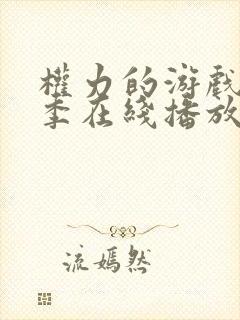 權力的游戲
季在綫播放
流嫣然